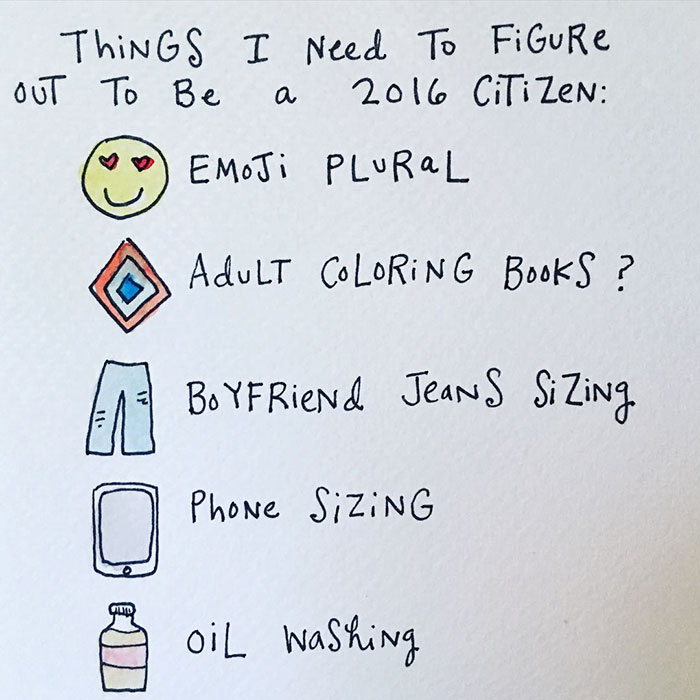 THINGS I NEED TO FIGURE
OUT TO BE A 2016 CITIZEN:
EMOJI PLURAL
ADULT COLORING BOOKS?
BOYFRIEND JEANS SIZING
PHONE SIZING
OIL WASHING